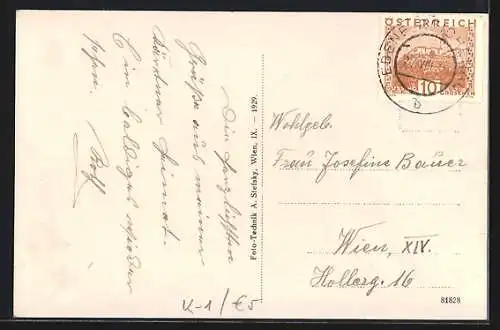 Die herzlichsten
Grüße aus meiner
Kärntner Heimat.
Ein baldiges Wieder
sehn.
Foto-Technik A. Stefsky, Wien, IX. — 1929
ÖSTERREICH
10
GROSCHEN
b
Wohlgeb.
Frau Josefine Bauer
Wien, XIV.
Hollerg. 16
K-1/€5
81828